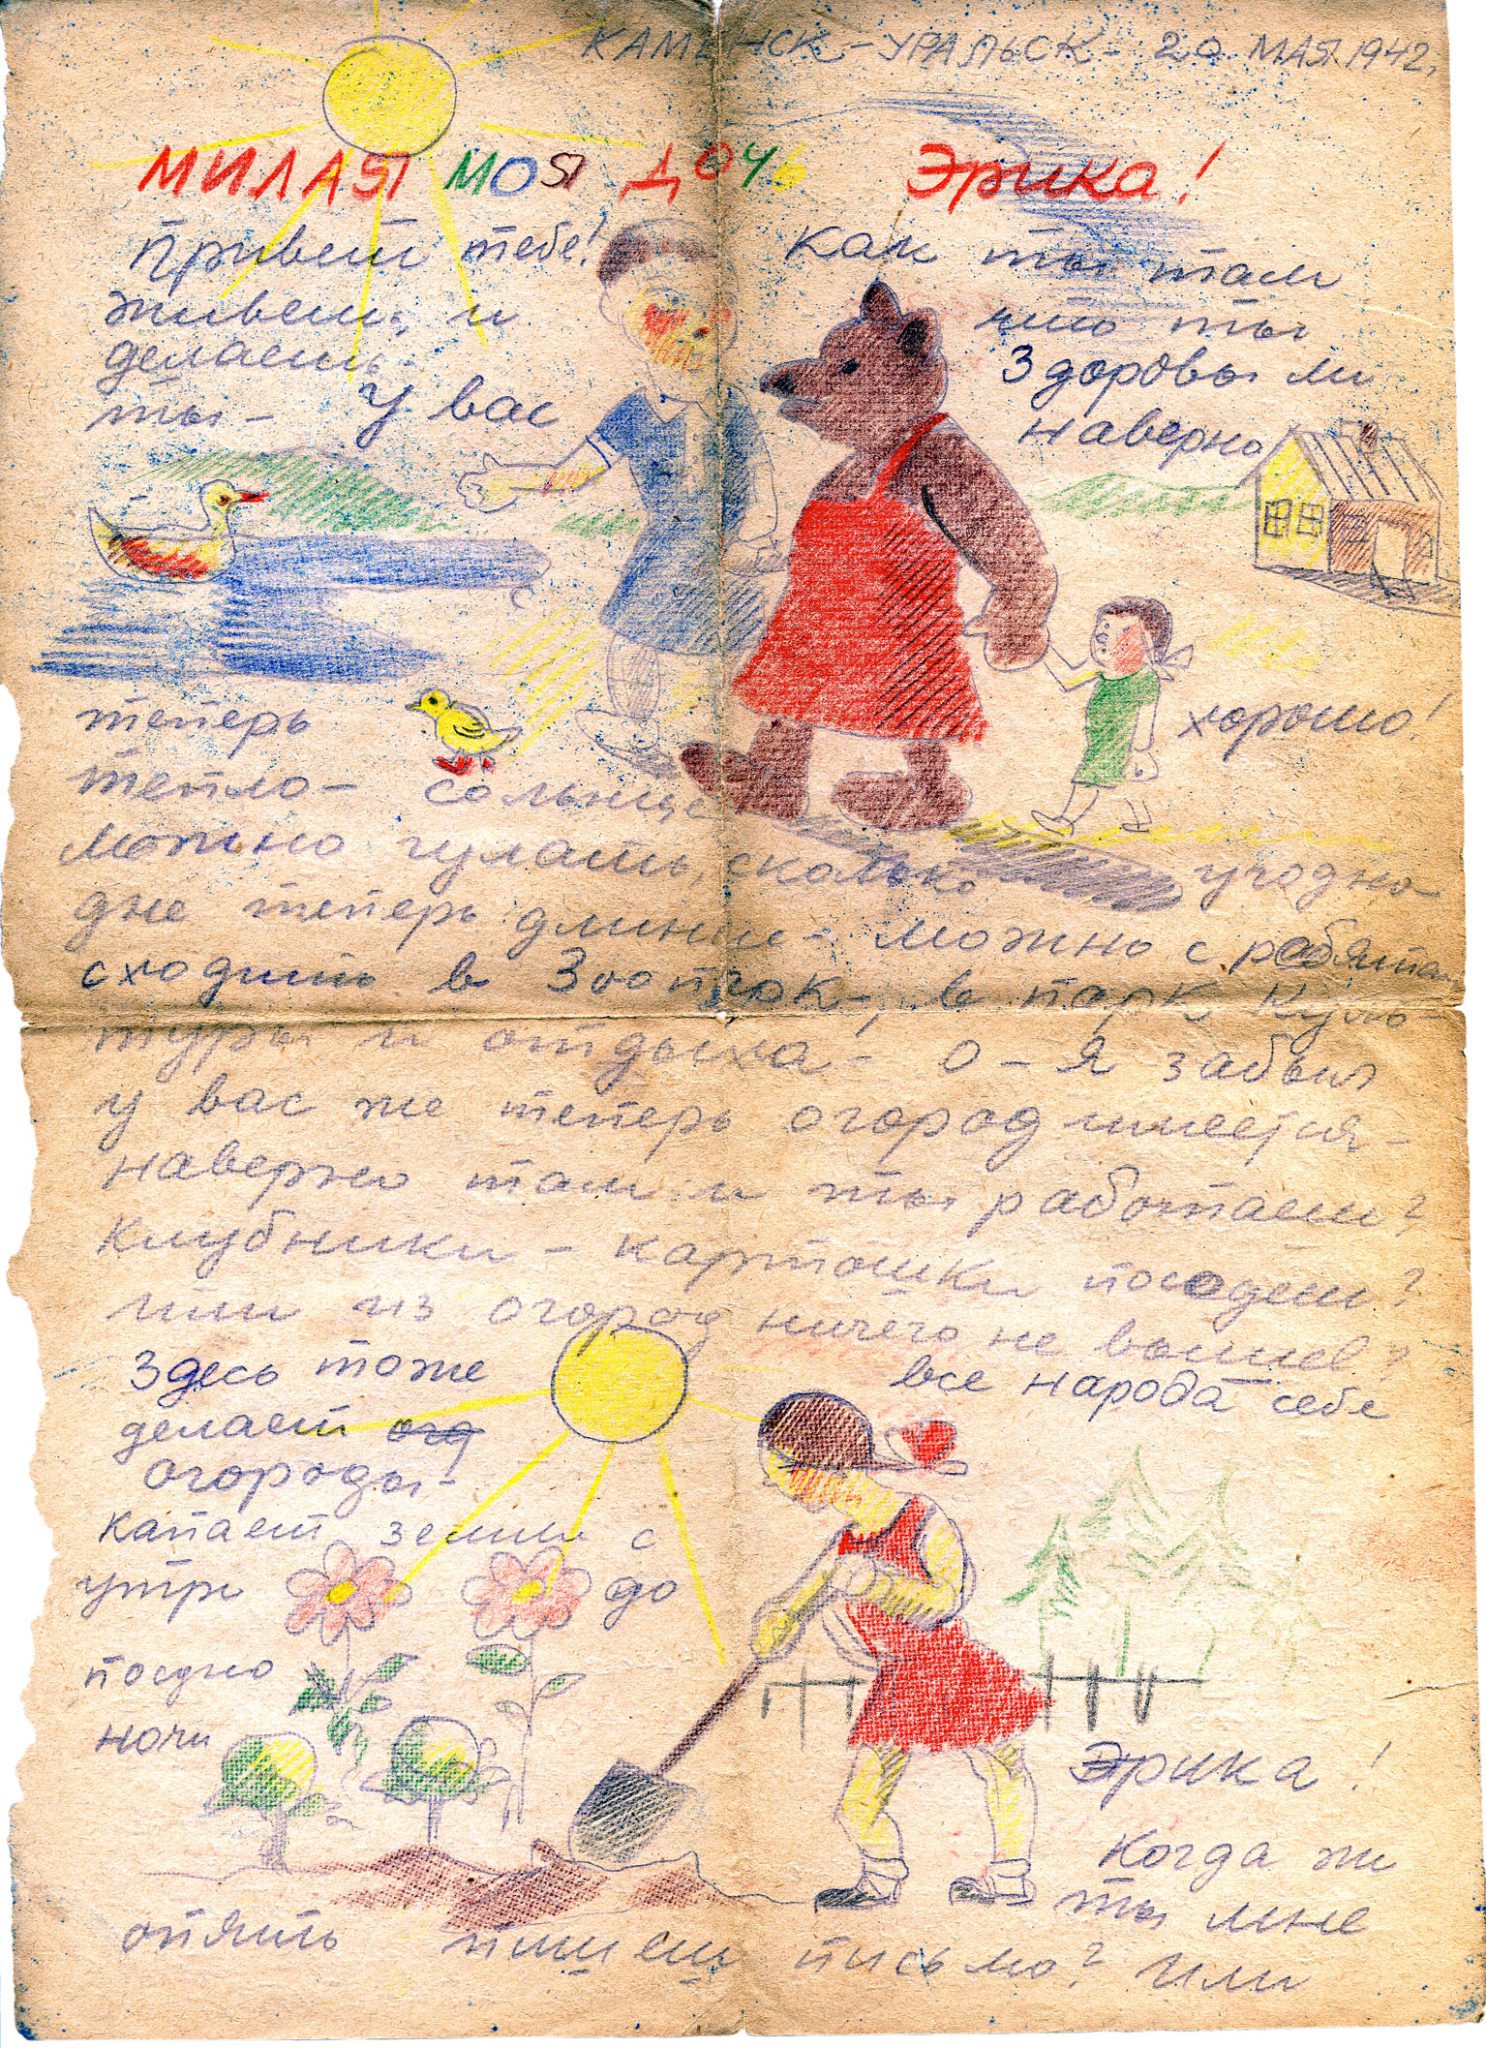 КАМЕНСК-УРАЛЬСК- 20 МАЯ.1942,
МИЛАЯ МОЯ ДОЧЬ Эрика!
Привет тебе! Как ты там
живешь, и что ты
делаешь Здоровы ли
ты- У вас наверно
теперь хорошо!
тепло- сольнце
можно гулать, сколько угодно
дне теперь длинне- можно с ребятам
сходить в Зоопарк-, в парк Куль-
туры и отдыха- О-я забыл
у вас же теперь огород имеется-
наверно там и ты работаеш?
Клубники- картошки посадеш?
или из огород ничего не вышев?
Здесь тоже все народа себе
делает ого
огороды-
капает земли с
утра до
поздно
ночи
Эрика!
Когда же
ты мне
опять пишеш письмо? Или